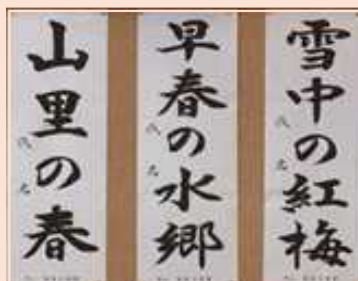 雪中の紅梅
早春の水郷
山里の春